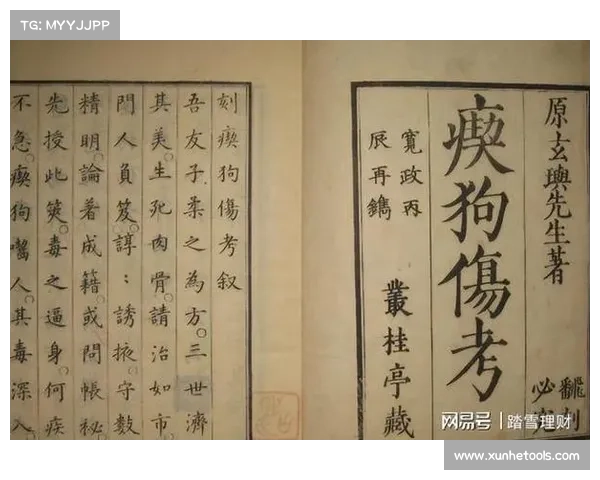 TG: MYYJJPP
原玄璵先生著
翻刻
必究
瘈狗傷考
寬政丙
辰再鐫
叢桂亭藏
刻瘈狗傷考叙
吾友子柔之為方。三世濟
其美。生死肉骨。請治如市。
門人負笈。諄〻誘掖。守數
精明。論著成籍。或問帳秘。
先授此筴。毒之逼身。何疾
不急。瘈狗嚙人。其毒深入
网易号 | 踏雪理财
www.xunhetools.com